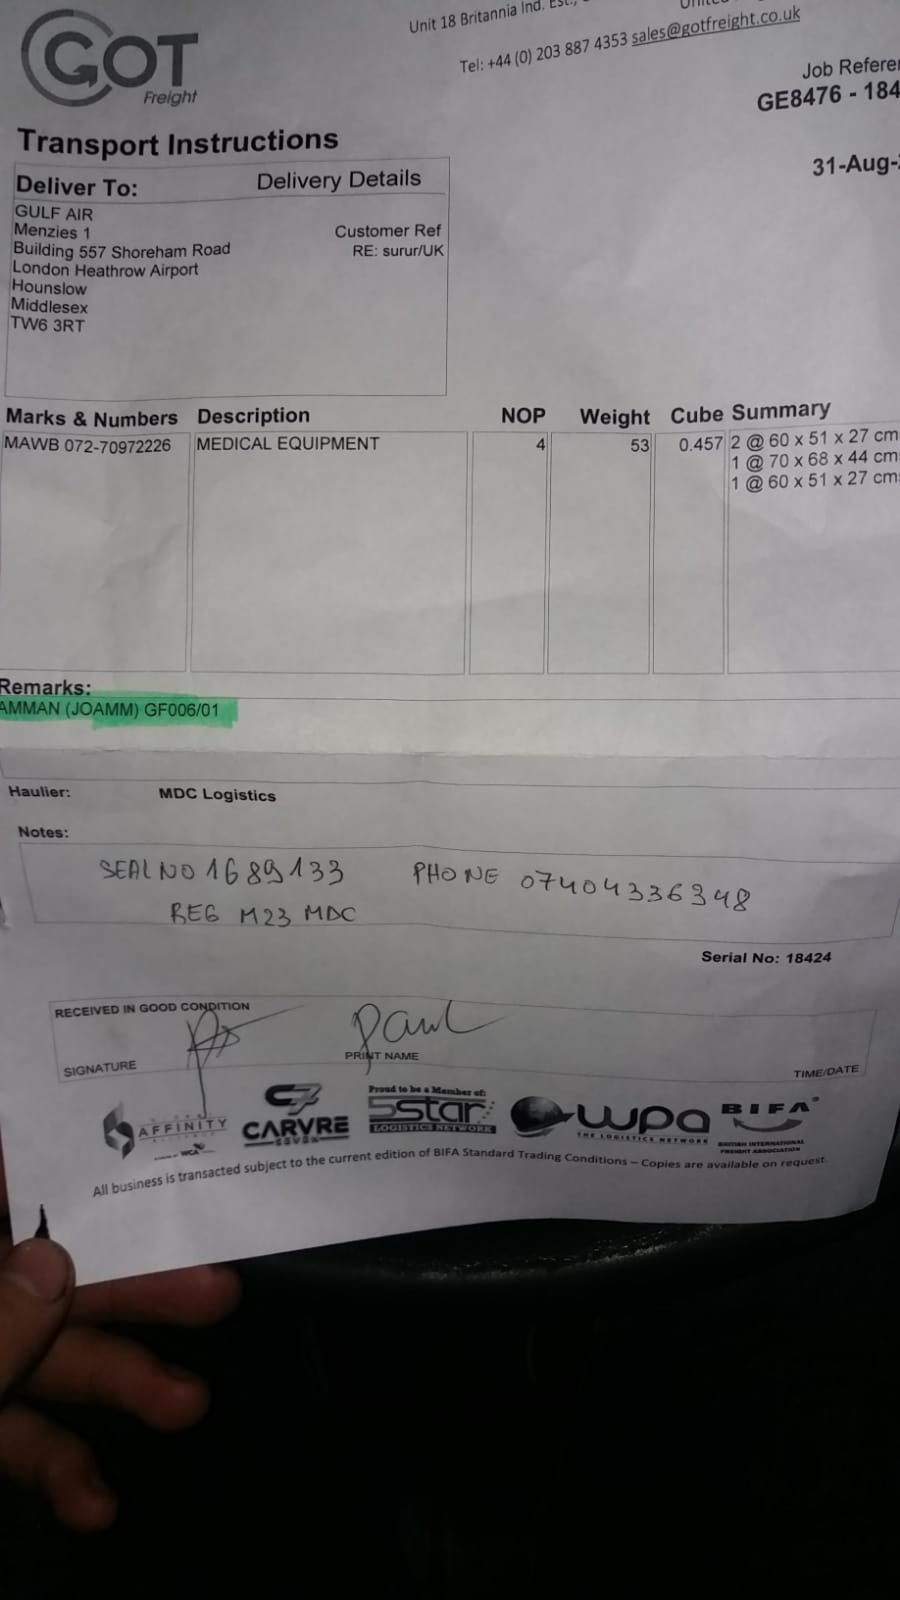 GOT
Freight
Unit 18 Britannia Ind. Est.,
Tel: +44 (0) 203 887 4353 sales@gotfreight.co.uk
Job Refere
GE8476 - 184
31-Aug-
Transport Instructions
Deliver To: Delivery Details
GULF AIR
Menzies 1 Customer Ref
Building 557 Shoreham Road RE: surur/UK
London Heathrow Airport
Hounslow
Middlesex
TW6 3RT
Marks & Numbers Description NOP Weight Cube Summary
MAWB 072-70972226 MEDICAL EQUIPMENT 4 53 0.457 2 @ 60 x 51 x 27 cm
1 @ 70 x 68 x 44 cm
1 @ 60 x 51 x 27 cm
Remarks:
AMMAN (JOAMM) GF006/01
Haulier: MDC Logistics
Notes:
SEAL NO 1689133 PHONE 07404336348
REG M23 MDC
Serial No: 18424
RECEIVED IN GOOD CONDITION
Paul
SIGNATURE PRINT NAME TIME/DATE
AFFINITY
WCA
C7
CARVRE
SEVEN
Proud to be a Member of:
5star
LOGISTICS NETWORK
wpa
THE LOGISTICS NETWORK
BIFA
BRITISH INTERNATIONAL
FREIGHT ASSOCIATION
All business is transacted subject to the current edition of BIFA Standard Trading Conditions – Copies are available on request.